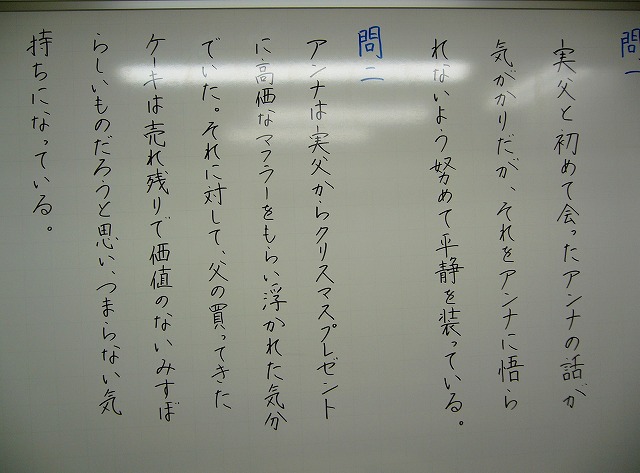 問一
実父と初めて会ったアンナの話が
気がかりだが、それをアンナに悟ら
れないよう努めて平静を装っている。
問二
アンナは実父からクリスマスプレゼント
に高価なマフラーをもらい浮かれた気分
でいた。それに対して、父の買ってきた
ケーキは売れ残りで価値のないみすぼ
らしいものだろうと思い、つまらない気
持ちになっている。